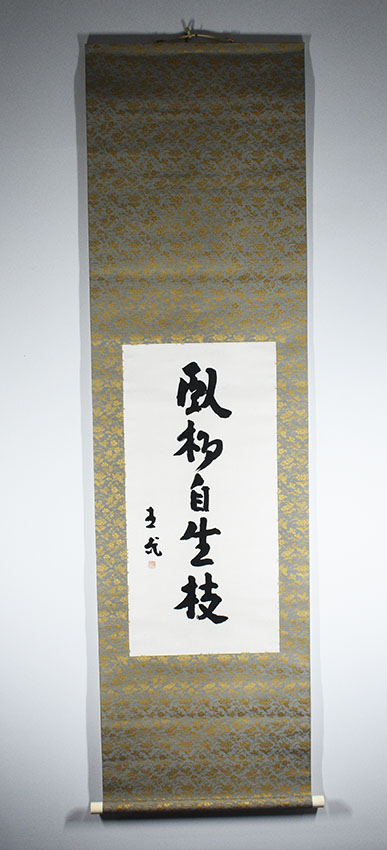 臥柳自生枝